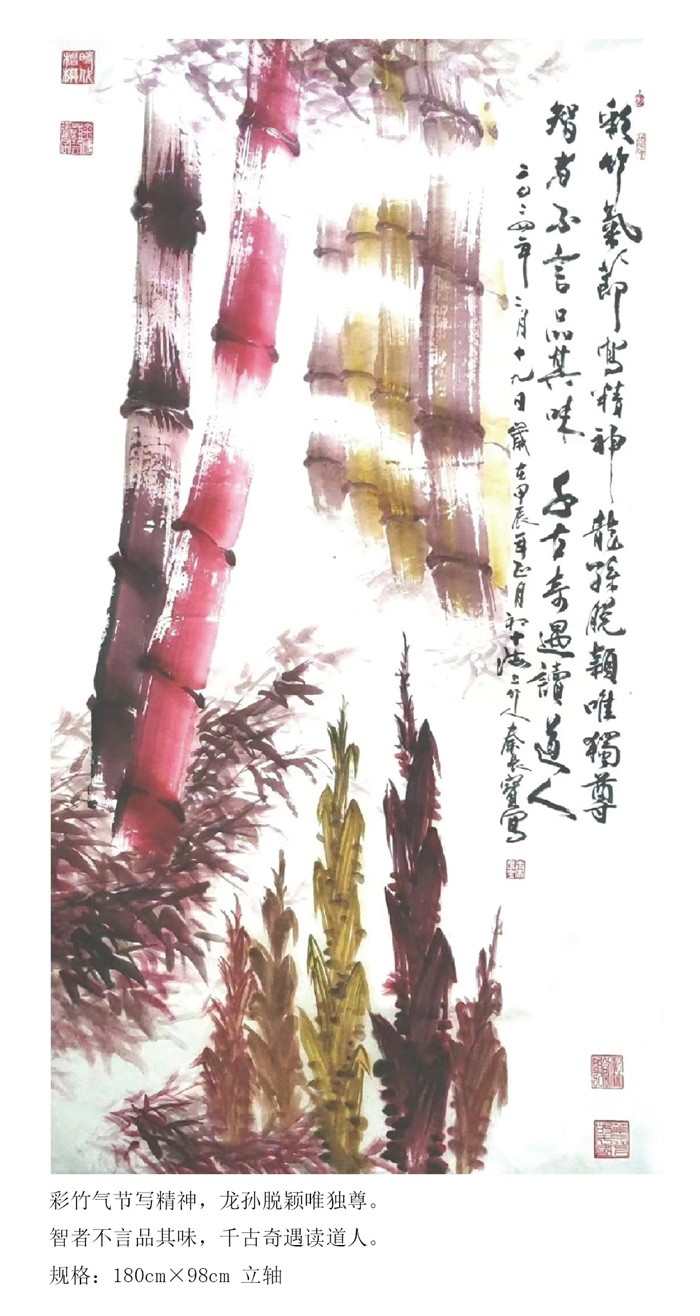 彩竹氣節寫精神 龍孫脱穎唯獨尊
智者不言品其味 千古奇遇讀道人
二〇二四年二月十九日歲在甲辰年正月初十海上行人秦长寶寫
彩竹气节写精神，龙孙脱颖唯独尊。
智者不言品其味，千古奇遇读道人。
规格：180cm×98cm 立轴